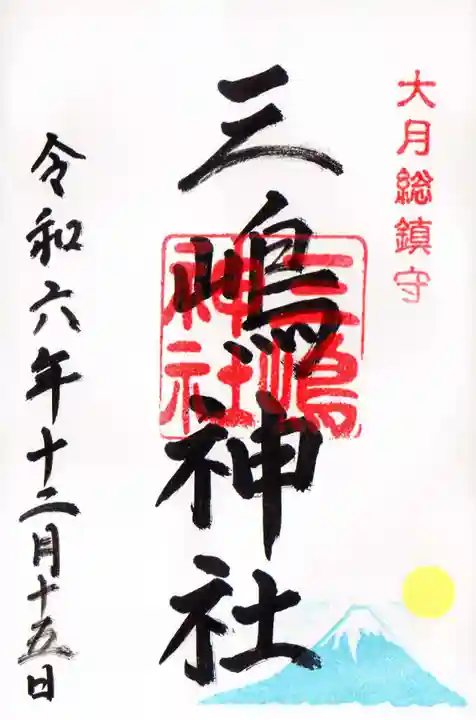 大月総鎮守
三嶋神社
三嶋
神社
令和六年十二月十五日